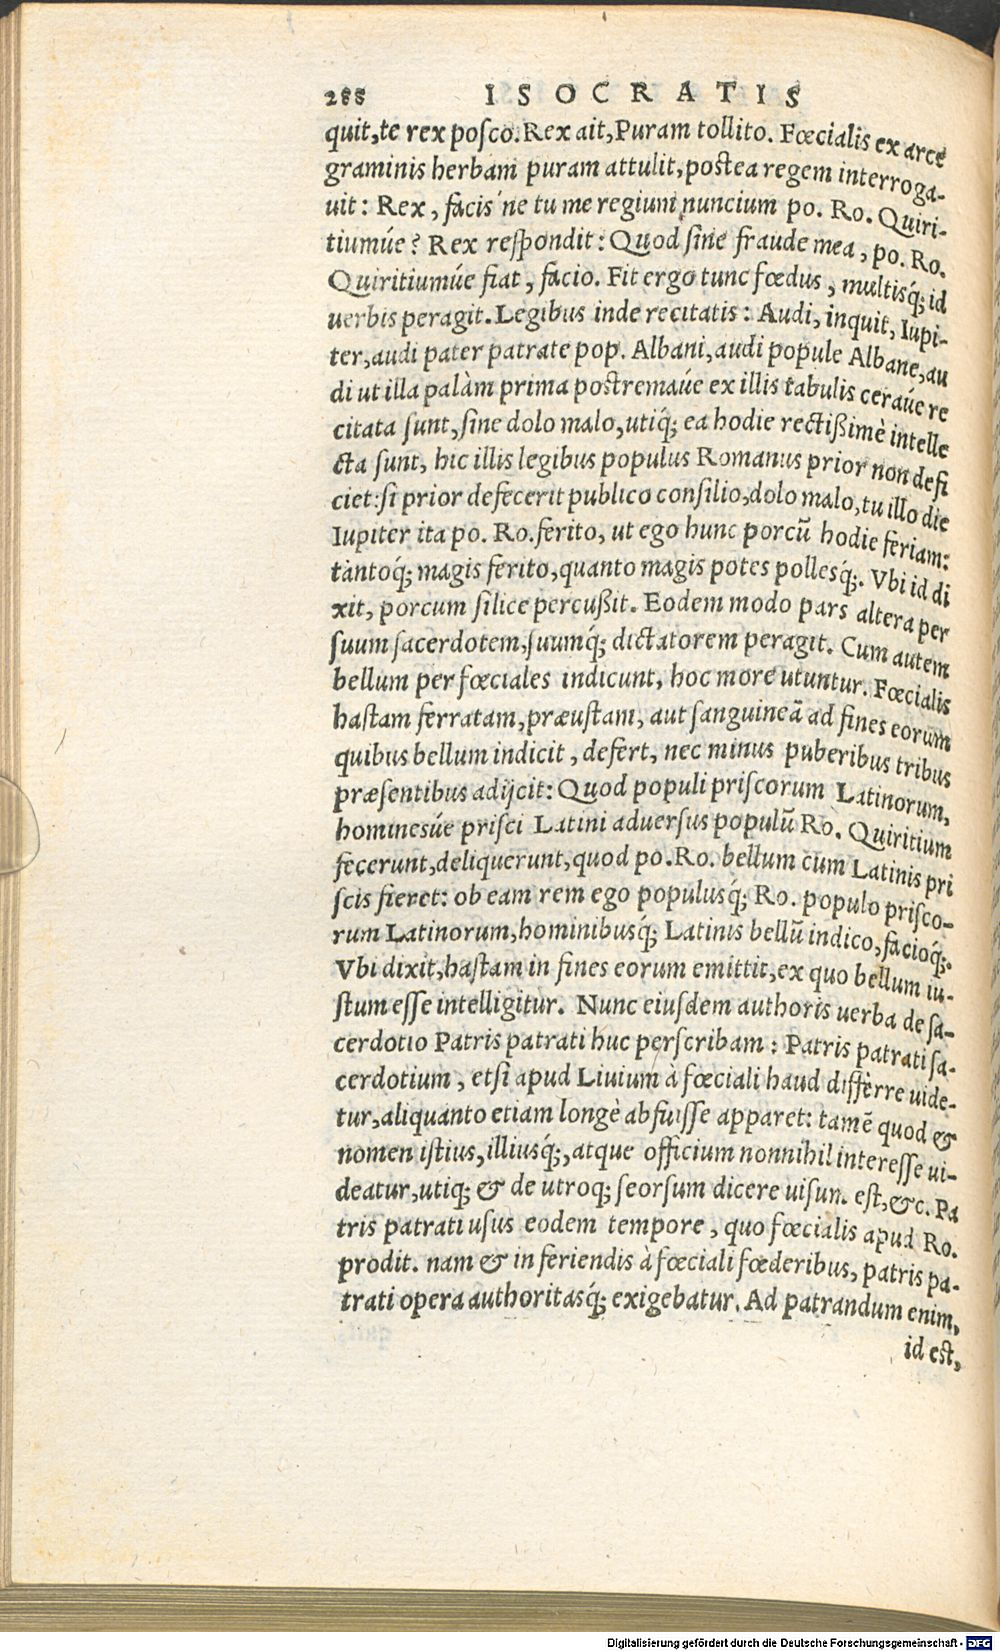 288 ISOCRATIS
quit,te rex posco.Rex ait,Puram tollito. Fœcialis ex arce
graminis herbam puram attulit,postea regem interroga-
uit: Rex, facis ne tu me regium nuncium po. Ro. Quiri-
tiumúe? Rex respondit: Quod sine fraude mea, po. Ro.
Quiritiumúe fiat, facio. Fit ergo tunc fœdus, multisq́; id
uerbis peragit. Legibus inde recitatis: Audi, inquit, Iupi-
ter,audi pater patrate pop. Albani,audi popule Albane,au
di ut illa palàm prima postremaúe ex illis tabulis ceraúe re
citata sunt,sine dolo malo,utiq́; ea hodie rectißimè intelle
cta sunt, hic illis legibus populus Romanus prior non defi
ciet:si prior defecerit publico consilio,dolo malo,tu illo die
Iupiter ita po. Ro.ferito, ut ego hunc porcũ hodie feriam:
tantoq́; magis ferito,quanto magis potes pollesq́;. Vbi id di
xit, porcum silice percußit. Eodem modo pars altera per
suum sacerdotem,suumq́; dictatorem peragit. Cum autem
bellum per fœciales indicunt, hoc more utuntur. Fœcialis
hastam ferratam,præustam, aut sanguineã ad fines eorum
quibus bellum indicit, defert, nec minus puberibus tribus
præsentibus adijcit: Quod populi priscorum Latinorum,
hominesúe prisci Latini aduersus populũ Ro. Quiritium
fecerunt,deliquerunt,quod po.Ro. bellum cum Latinis pri
scis fieret: ob eam rem ego populusq́; Ro. populo prisco-
rum Latinorum,hominibusq́; Latinis bellũ indico,facioq́;.
Vbi dixit,hastam in fines eorum emittit,ex quo bellum iu-
stum esse intelligitur. Nunc eiusdem authoris uerba de sa-
cerdotio Patris patrati huc perscribam: Patris patrati sa-
cerdotium, etsi apud Liuium à fœciali haud differre uide-
tur,aliquanto etiam longè abfuisse apparet: tamẽ quod &
nomen istius,illiusq́;,atque officium nonnihil interesse ui-
deatur,utiq; & de utroq; seorsum dicere uisum est,&c. Pa
tris patrati usus eodem tempore, quo fœcialis apud Ro.
prodit. nam & in feriendis à fœciali fœderibus, patris pa-
trati opera authoritasq́; exigebatur. Ad patrandum enim,
id est,
Digitalisierung gefördert durch die Deutsche Forschungsgemeinschaft - DFG